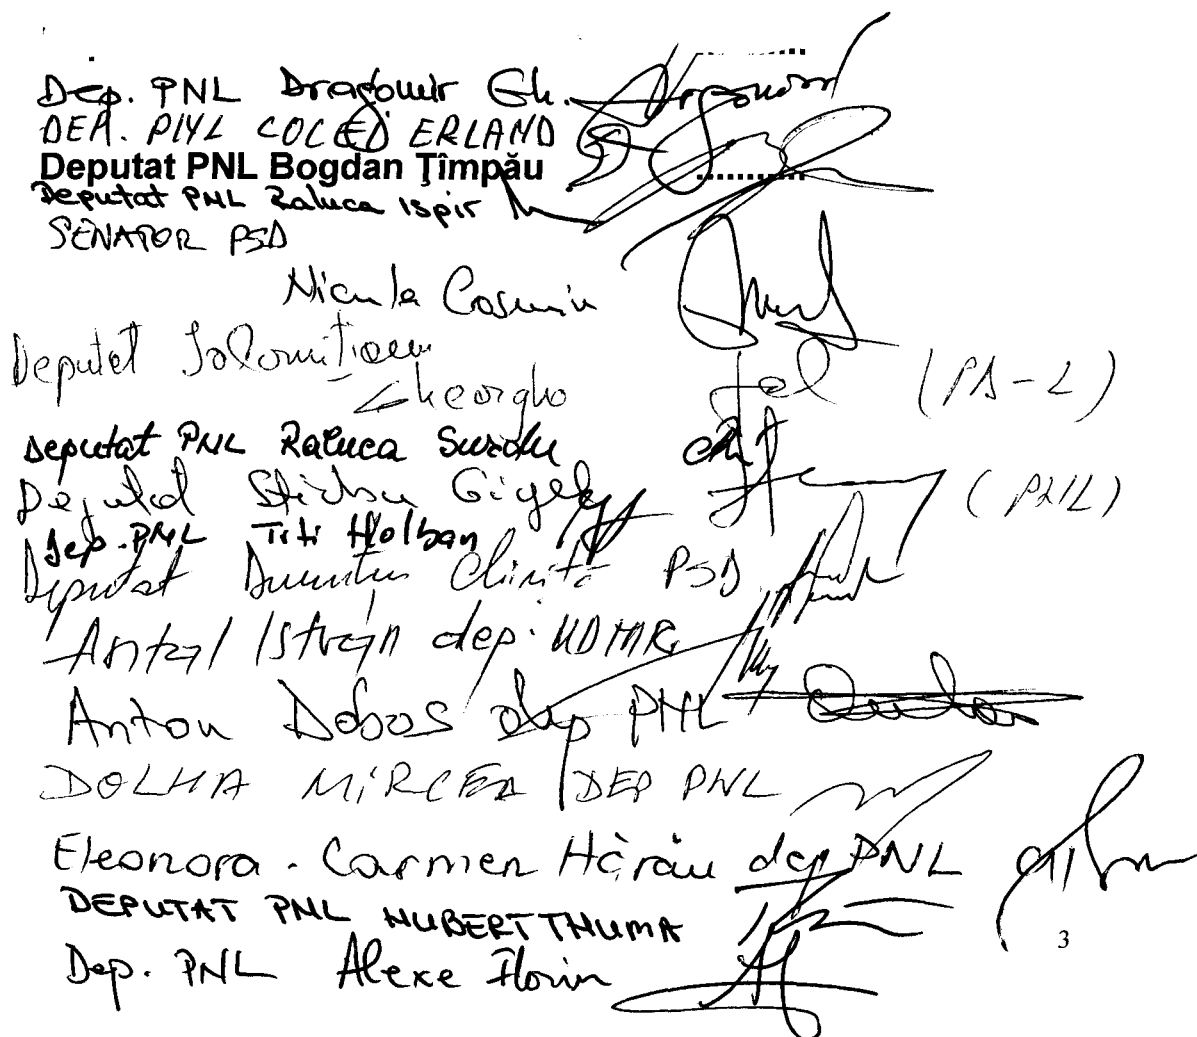 Dep. PNL Dragomir Gh.
DEP. PNL COCEI ERLAND
Deputat PNL Bogdan Ţîmpău
Deputat PNL Raluca Ispir
SENATOR PSD
Nicula Cosmin
Deputat Ialomițianu
Gheorghe
(PD-L)
Deputat PNL Raluca Surdu
Deputat Știrbu Gigel
(PNL)
Dep. PNL Titi Holban
Deputat Dumitru Chiriță PSD
Antal István dep. UDMR
Anton Doboș dep PNL
DOLHA MIRCEA DEP PNL
Eleonora-Carmen Hărău dep PNL
DEPUTAT PNL HUBERT THUMA
Dep. PNL Alexe Florin
3